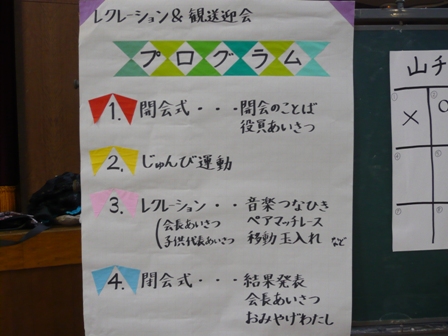 レクレーション & 観送迎会
プログラム
1. 開会式・・・開会のことば
役員あいさつ
2. じゅんび運動
3. レクレーション・・音楽つなひき
(会長あいさつ ペアマッチレース
子供代表あいさつ 移動玉入れ など
4. 閉会式・・・結果発表
会長あいさつ
おみやげわたし
山チ
× 0